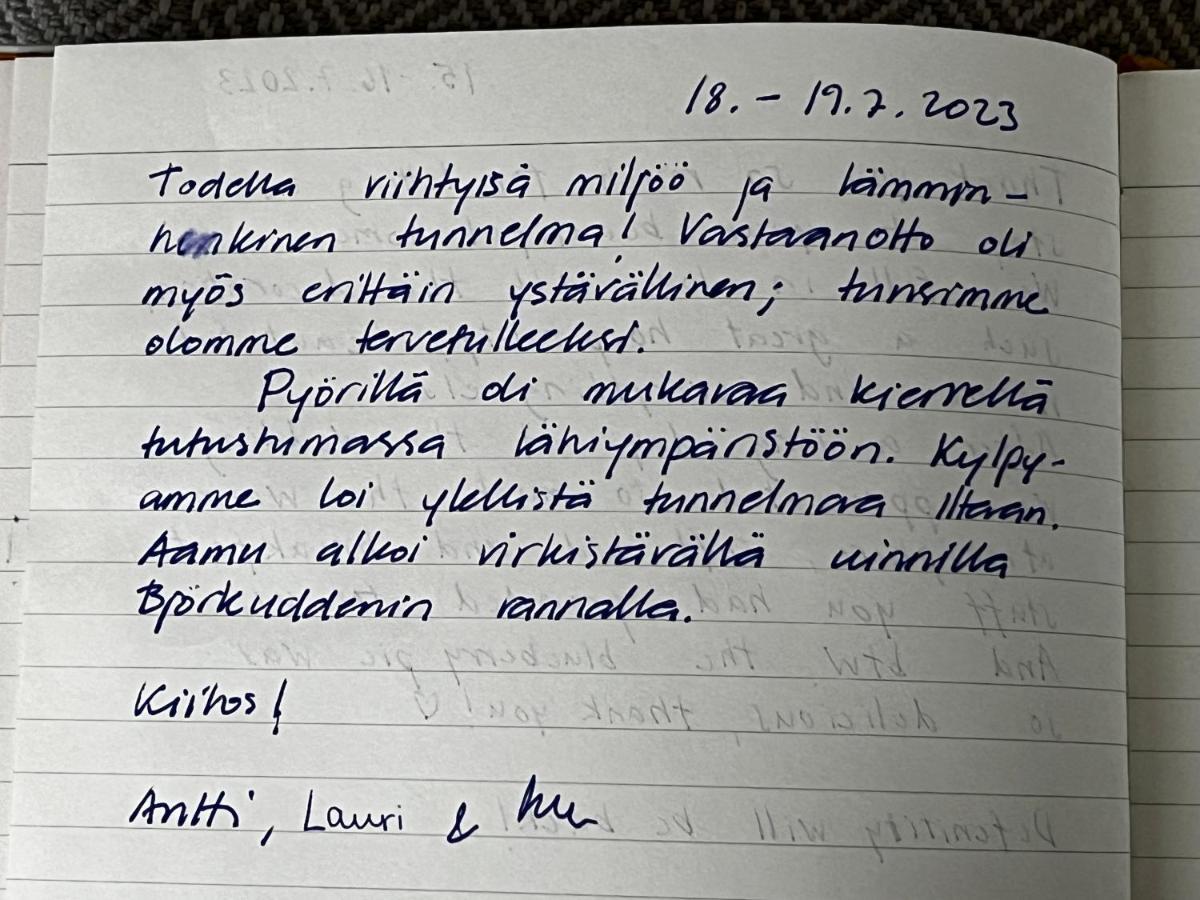 18. - 19.7.2023
Todella viihtyisä miljöö ja lämmin-
henkinen tunnelma! Vastaanotto oli
myös erittäin ystävällinen; tunsimme
olomme tervetulleeksi.
Pyörillä oli mukavaa kierrellä
tutustumassa lähiympäristöön. Kylpy-
amme loi ylellistä tunnelmaa iltaan.
Aamu alkoi virkistävällä uinnilla
Björkuddenin rannalla.
Kiitos!
Antti, Lauri &